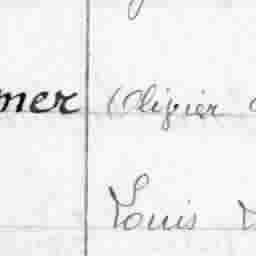 mer Olivier
Louis